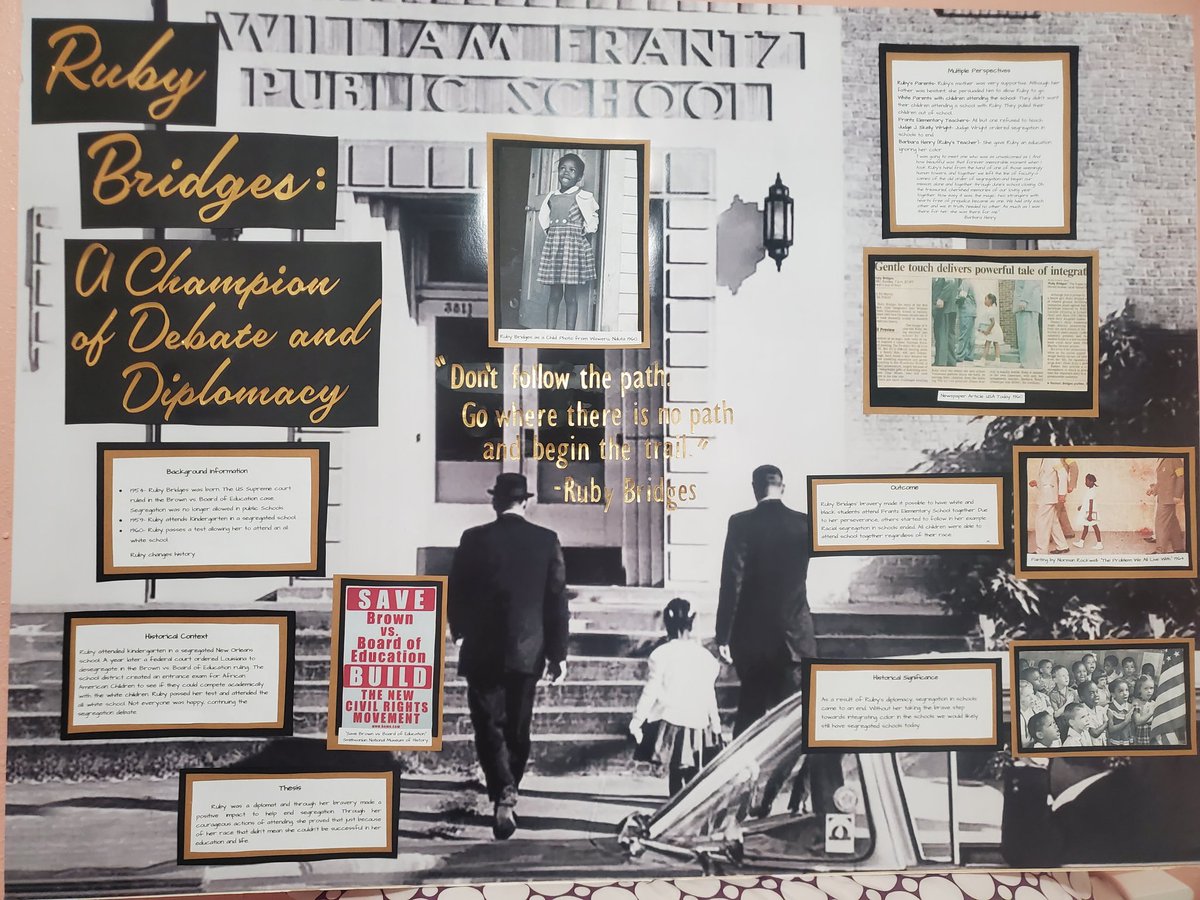 Ruby
Bridges:
A Champion
of Debate and
Diplomacy
WILLIAM FRANTZ
PUBLIC SCHOOL
3811
Ruby Bridges as a Child Photo from 1960
"Don't follow the path.
Go where there is no path
and begin the trail."
-Ruby Bridges
Background Information
1954- Ruby Bridges was born. The US Supreme court
ruled in the Brown vs. Board of Education case.
Segregation was no longer allowed in public Schools
1959- Ruby attends Kindergarten in a segregated school
1960- Ruby passes a test allowing her to attend an all
white school.
Ruby changes history
Historical Context
Ruby attended kindergarten in a segregated New Orleans
school. A year later a federal court ordered Louisiana to
desegregate in the Brown vs. Board of Education ruling. The
school district created an entrance exam for African
American Children to see if they could compete academically
with the white children. Ruby passed her test and attended the
all white school. Not everyone was happy, continuing the
segregation debate.
SAVE
Brown
vs.
Board of
Education
BUILD
THE NEW
CIVIL RIGHTS
MOVEMENT
"Save Brown vs. Board of Education"
Smithsonian National Museum of History
Thesis
Ruby was a diplomat and through her bravery made a
positive impact to help end segregation. Through her
courageous actions of attending, she proved that just because
of her race that didn't mean she couldn't be successful in her
education and life.
Multiple Perspectives
Ruby's Parents- Ruby's mother was very supportive. Although her
father was hesitant she persuaded him to allow Ruby to go.
White Parents with children attending the school- They didn't want
their children attending a school with Ruby. They pulled their
children out of school.
Frantz Elementary Teachers- All but one refused to teach
Judge J Skelly Wright- Judge Wright ordered segregation in
schools to end.
Barbara Henry (Ruby's Teacher)- She gave Ruby an education
ignoring her color.
Barbara Henry
Gentle touch delivers powerful tale of integrat
Newspaper Article USA Today 1960
Outcome
Ruby Bridges' bravery made it possible to have white and
black students attend Frantz Elementary School together. Due
to her perseverance, others started to follow in her example.
Racial segregation in schools ended. All children were able to
attend school together regardless of their race.
Painting by Norman Rockwell- "The Problem We All Live With," 1964
Historical Significance
As a result of Ruby's diplomacy, segregation in schools
came to an end. Without her taking the brave step
towards integrating color in the schools we would likely
still have segregated schools today.